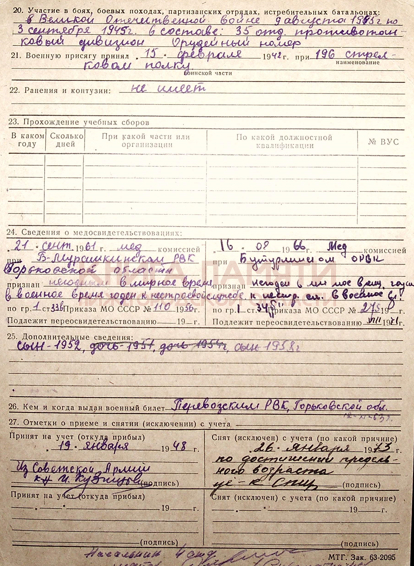 20. Участие в боях, боевых походах, партизанских отрядах, истребительных батальонах:
в Великой Отечественной войне 9 августа 1945 г по
3 сентября 1945 г. в составе: 35 отд. противотан-
ковый дивизион Орудейный номер
21. Военную присягу принял „ 15 “ февраля 1942 г. при 196 стрел-
наименование
ковом полку.
воинской части
22. Ранения и контузии: не имеет
23. Прохождение учебных сборов
В каком году Сколько дней При какой части или организации По какой должностной квалификации № ВУС
24. Сведения о медосвидетельствованиях:
„ 21 “ сент. 1961 г. мед комиссией
при Б-Мурашкинском РВК
Горьковской области
признан негодным в мирное время
в военное время годен к нестроевой
по гр. I ст. приказа МО СССР № 110 19
Подлежит переосвидетельствованию 19 г.
„ 16 “ 08 1966 Мед комиссией
при Бутурлинском ОРВК
признан негоден в
по гр. I ст. Приказа МО СССР №
Подлежит переосвидетельствованию
25. Дополнительные сведения:
сын-1952, дочь-1951, дочь-1954г, сын 1958г
26. Кем и когда выдан военный билет Перевозским РВК, Горьковской обл.
27. Отметки о приеме и снятии (исключении) с учета
Принят на учет (откуда прибыл)
„ 19 “ января 1948 г.
Из Советской Армии
(подпись)
Принят на учет (откуда прибыл)
„ “ 19 г.
(подпись)
Снят (исключен) с учета (причина)
„ 26 “ января 1973
по достижении предель-
ного возраста
(подпись)
Снят (исключен) с учета (причина)
„ “ 19 г.
(подпись)
Начальник 4 отд.
МТГ. Зак. 63-2095
ПАМЯТИ